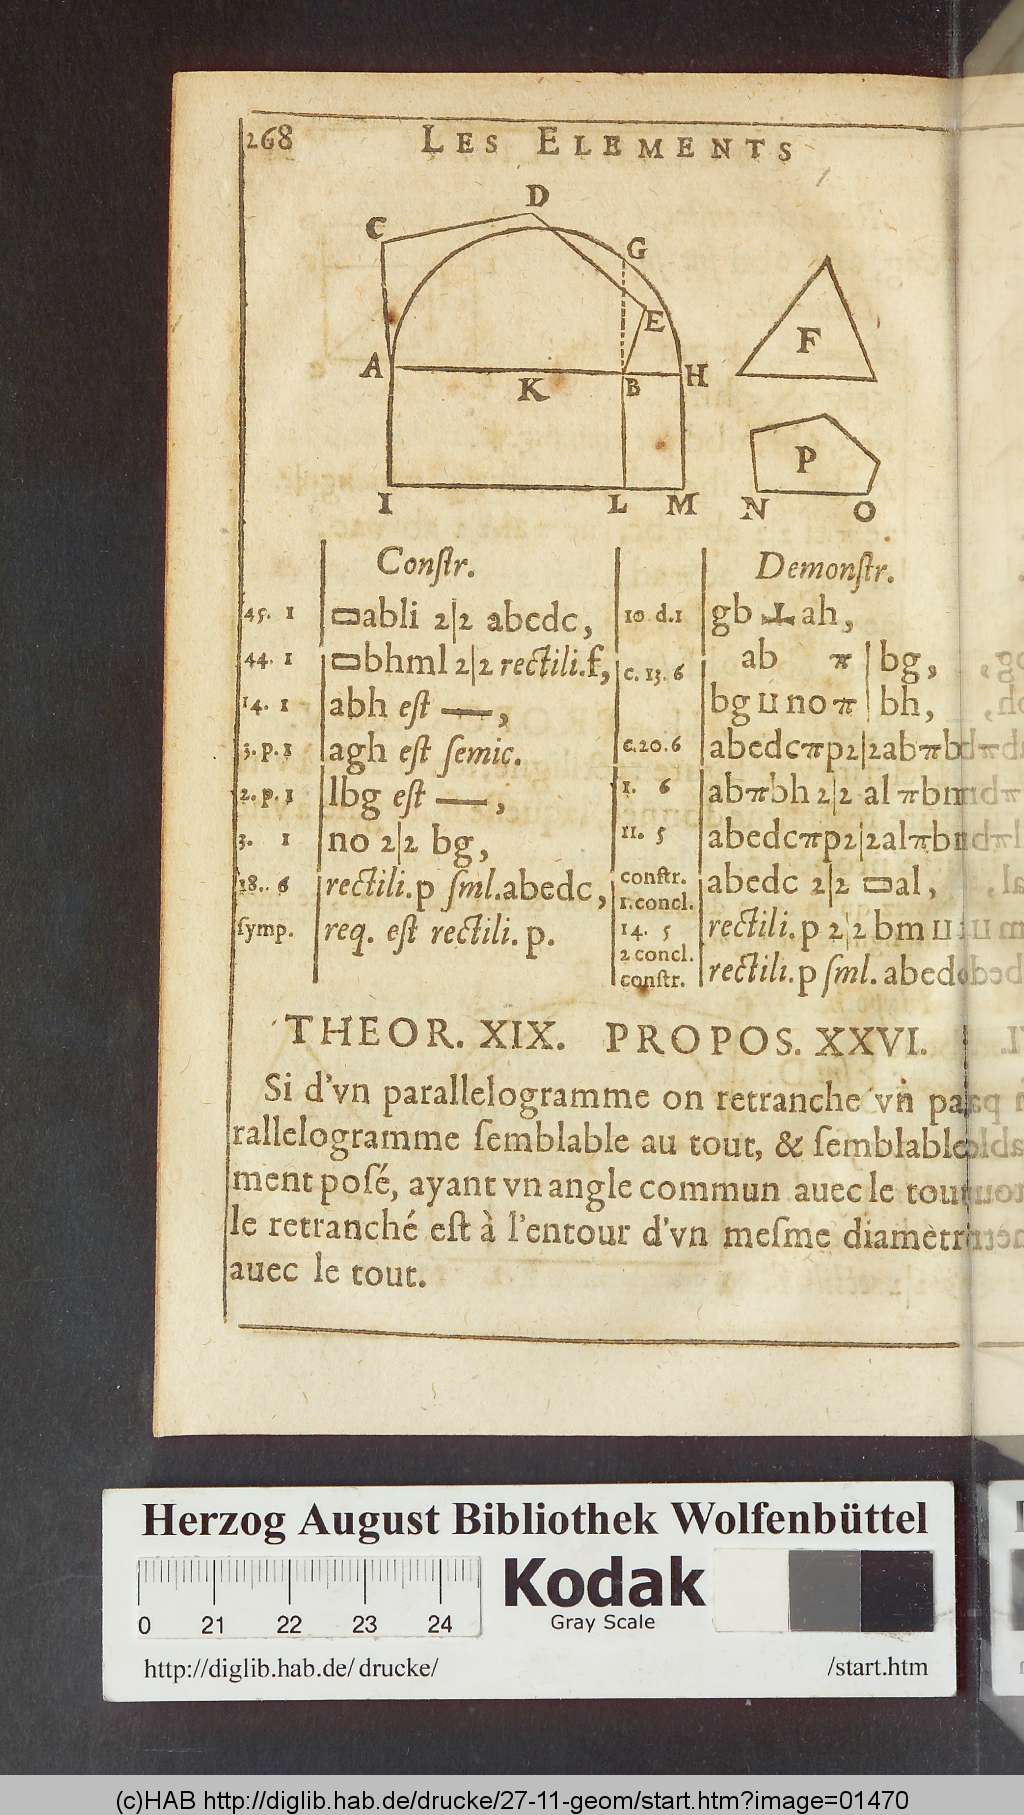 268 LES ELEMENTS
D
C
G
E
F
A
K
B
H
P
I
L
M
N
O
Constr.
45. 1 ▭abli 2|2 abedc,
44. 1 ▭bhml 2|2 rectili.f,
14. 1 abh est —,
3. p. 1 agh est ſemic.
2. p. 1 lbg est —,
3. 1 no 2|2 bg,
18. 6 rectili.p ſml.abedc,
ſymp. req. est rectili. p.
Demonſtr.
10 d.1 gb ⊥ ah,
c. 13. 6 ab π | bg,
bg II no π | bh,
c.20.6 abedcπp2|2abπb
1. 6 abπbh 2|2 alπbm
11. 5 abedcπp2|2alπb
conſtr. abedc 2|2 ▭al,
1.concl.
14. 5 rectili.p 2|2 bm II
2 concl.
conſtr. rectili.p ſml. abed
THEOR. XIX. PROPOS. XXVI.
Si d'vn parallelogramme on retranche vn pa-
rallelogramme ſemblable au tout, & ſemblable-
ment poſé, ayant vn angle commun auec le tout
le retranché eſt à l'entour d'vn meſme diametr
auec le tout.
Herzog August Bibliothek Wolfenbüttel
0 21 22 23 24
Kodak
Gray Scale
http://diglib.hab.de/drucke/ /start.htm
(c)HAB http://diglib.hab.de/drucke/27-11-geom/start.htm?image=01470